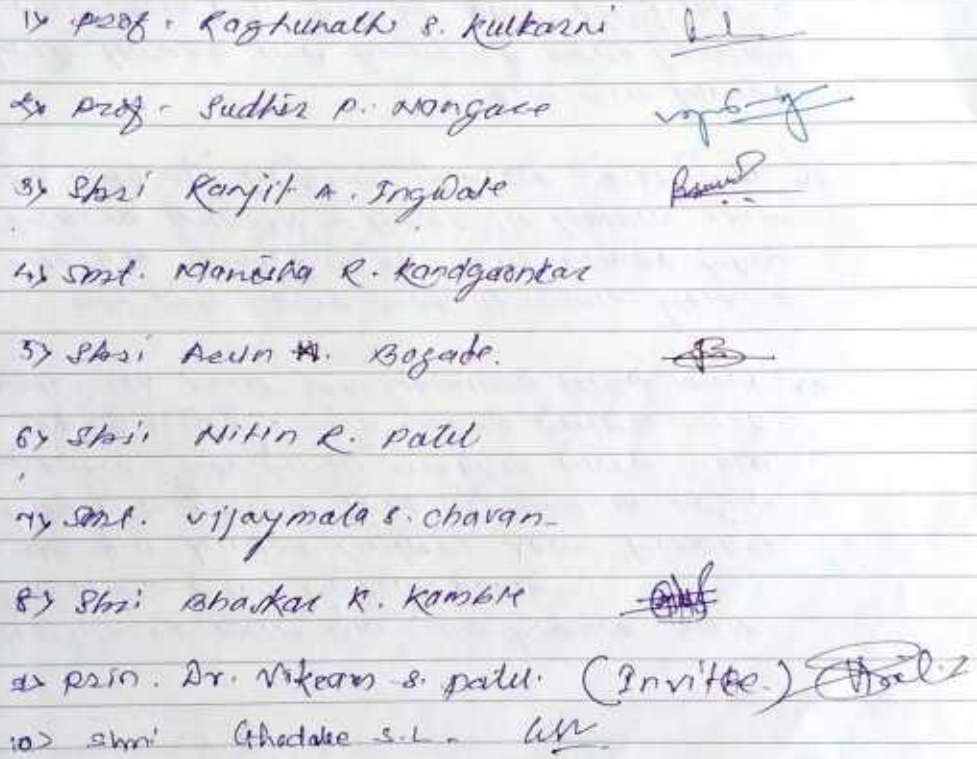 1) Prof. Raghunath S. Kulkarni
2) Prof. Sudhir P. Nangare
3) Shri Ranjit A. Ingwale
4) Smt. Manisha R. Kandgaonkar
5) Shri Arun Bogade.
6) Shri Nitin R. Patil
7) Smt. Vijaymala S. Chavan
8) Shri Bhaskar K. Kamble
9) Prin. Dr. Vikram S. Patil. (Invitee.)
10) Shri Ghodake S.L.